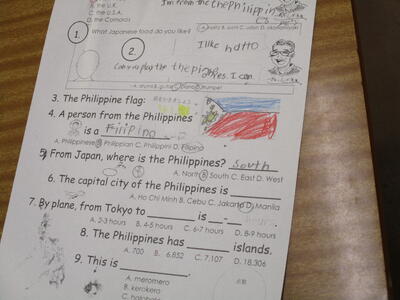 I'm from the the Philippin
B. the U.K.
C. the U.S.A.
D. the Comoros
1. What Japanese food do you like?
I like natto
2.
Can you play the the piano
Yes, I can.
3. The Philippine flag:
4. A person from the Philippines
is a Filipino
A. Philippinese B. Philippian C. Philippini D. Filipino
5. From Japan, where is the Philippines? South
A. North B. South C. East D. West
6. The capital city of the Philippines is
A. Ho Chi Minh B. Cebu C. Jakarta D. Manila
7. By plane, from Tokyo to is - hours.
A. 2-3 hours B. 4-5 hours C. 6-7 hours D. 8-9 hours
8. The Philippines has islands.
A. 700 B. 6,852 C. 7,107 D. 18,306
9. This is
A. meromero
B. kerokero